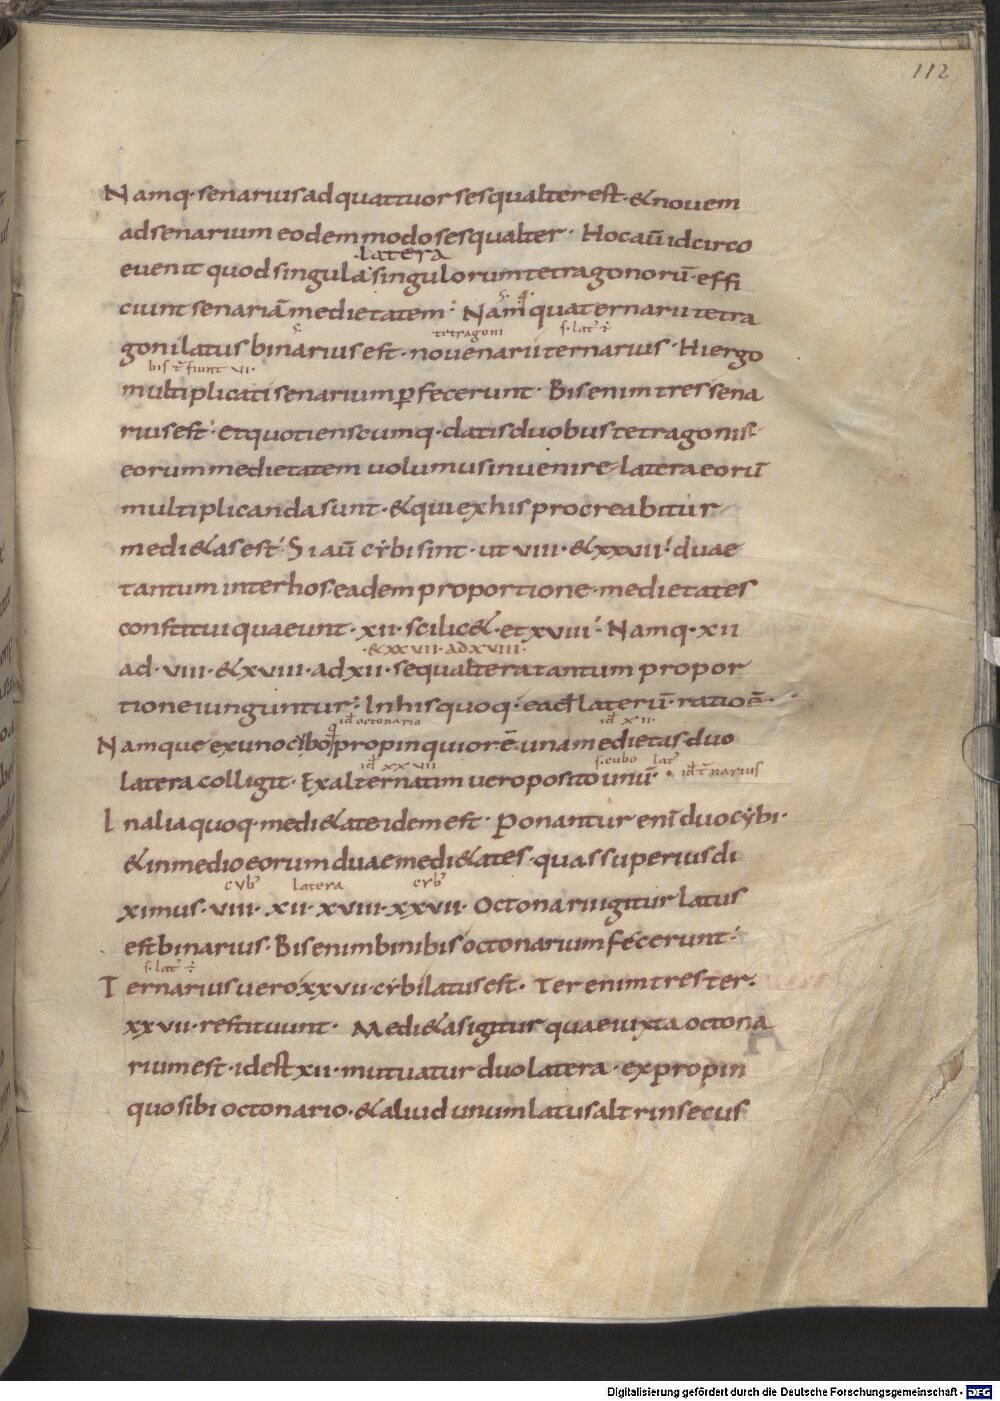 112
Namq· senarius ad quattuor sesqualter est· & novem
ad senarium eodem modo sesqualter· Hoc aū idcirco
·latera
evenit quod singula singulorum tetragonorū· effi
ciunt senariā medietatem· Nam quaternarii tetra
tetragoni s· lat÷
goni latus binarius est· novenarii ternarius· Hi ergo
bis t̄ fiunt VI·
multiplicati senarium pfecerunt· Bis enim tres sena
rius est· et quotienscumq· datis duobus tetragonis
eorum medietatem uolumus invenire· latera eorū
multiplicanda sunt· & qui ex his procreabitur
medi&as est· Si aū cybi sint· ut VIII· & XXVII· duae
tantum inter hos eadem proportione medietates
constitui queunt· XII· scilic&· et XVIII· Namq· XII
·& XXVII· AD XVIII·
ad· VIII· & XVIII· ad XII· sequaltera tantum propor
tione iunguntur· In his quoq· eadē laterū· ratio ē·
id octonario id XII·
Namque ex uno cibo q propinquior ē· una medietas duo
id XXVII s· cubo lat
latera colligit· Ex alternatim vero posito unū· id t̄narius
In alia quoq· medi&ate idem est· Ponantur enī duo cybi·
& in medio eorum duae medi&ates· quas superius di
cyb latera cyb
ximus· VIII· XII· XVIII· XXVII· Octonarii igitur latus
est binarius· Bis enim bini bis octonarium fecerunt·
s· lat÷
Ternarius vero XXVII· cybi latus est· Ter enim tres ter·
XXVII· restituunt· Medi&as igitur quae iuxta octona
rium est· id est XII· mutuatur duo latera· ex propin
quo sibi octonario· & aliud unum latus altrinsecus
Digitalisierung gefördert durch die Deutsche Forschungsgemeinschaft - DFG